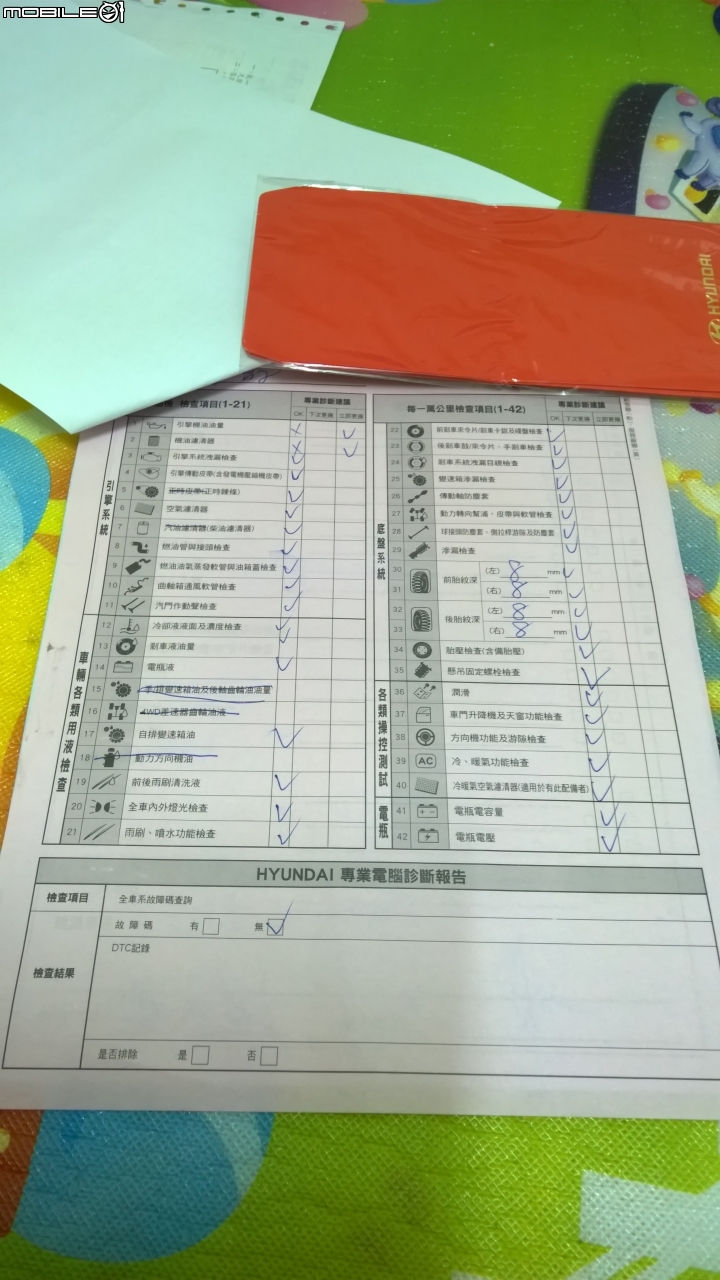 MOBILE01
HYUNDAI
檢查項目(1-21)
專業診斷建議
OK 下次更換 立即更換
引擎系統
1 引擎機油油量
2 機油濾清器
3 引擎系統洩漏檢查
4 引擎傳動皮帶(含發電機壓縮機皮帶)
5 正時皮帶(正時鍊條)
6 空氣濾清器
7 汽油濾清器(柴油濾清器)
8 燃油管與接頭檢查
9 燃油油氣蒸發軟管與油箱蓋檢查
10 曲軸箱通風軟管檢查
11 汽門作動聲檢查
車輛各類用液檢查
12 冷卻液液面及濃度檢查
13 剎車液油量
14 電瓶液
15 手排變速箱油及後軸齒輪油油量
16 4WD差速器齒輪油液
17 自排變速箱油
18 動力方向機油
19 前後雨刷清洗液
20 全車內外燈光檢查
21 雨刷、噴水功能檢查
每一萬公里檢查項目(1-42)
專業診斷建議
OK 下次更換 立即更換
底盤系統
22 前剎車來令片/剎車卡鉗及碟盤檢查
23 後剎車鼓/來令片、手剎車檢查
24 剎車系統洩漏目視檢查
25 變速箱滲漏檢查
26 傳動軸防塵套
27 動力轉向幫浦、皮帶與軟管檢查
28 球接頭防塵套、側拉桿游隙及防塵套
29 滲漏檢查
30 前胎紋深 (左) 8 mm
31 (右) 8 mm
32 後胎紋深 (左) 8 mm
33 (右) 8 mm
34 胎壓檢查(含備胎壓)
35 懸吊固定螺栓檢查
各類操控測試
36 潤滑
37 車門升降機及天窗功能檢查
38 方向機功能及游隙檢查
39 AC 冷、暖氣功能檢查
40 冷暖氣空氣濾清器(適用於有此配備者)
電瓶
41 電瓶電容量
42 電瓶電壓
HYUNDAI 專業電腦診斷報告
檢查項目 全車系故障碼查詢
檢查結果
故障碼 有 無
DTC記錄
是否排除 是 否